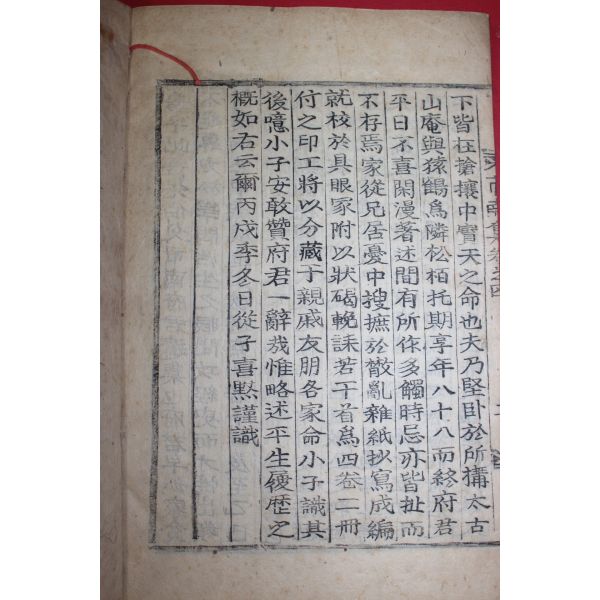 下皆在搶攘中實天之命也夫乃堅卧於所搆太古
山庵與猿鶴爲隣松栢托期享年八十八而終府君
平日不喜閑漫著述間有所作多觸時忌亦皆扯而
不存焉家從兄居憂中搜摭於散亂雜紙抄寫成編
就校於具眼家附以狀碣輓誄若干首爲四卷二冊
付之印工將以分藏于親戚友朋各家命小子識其
後噫小子安敢贊府君一辭哉惟略述平生履歷之
概如右云爾丙戌季冬日從子喜㷵謹識